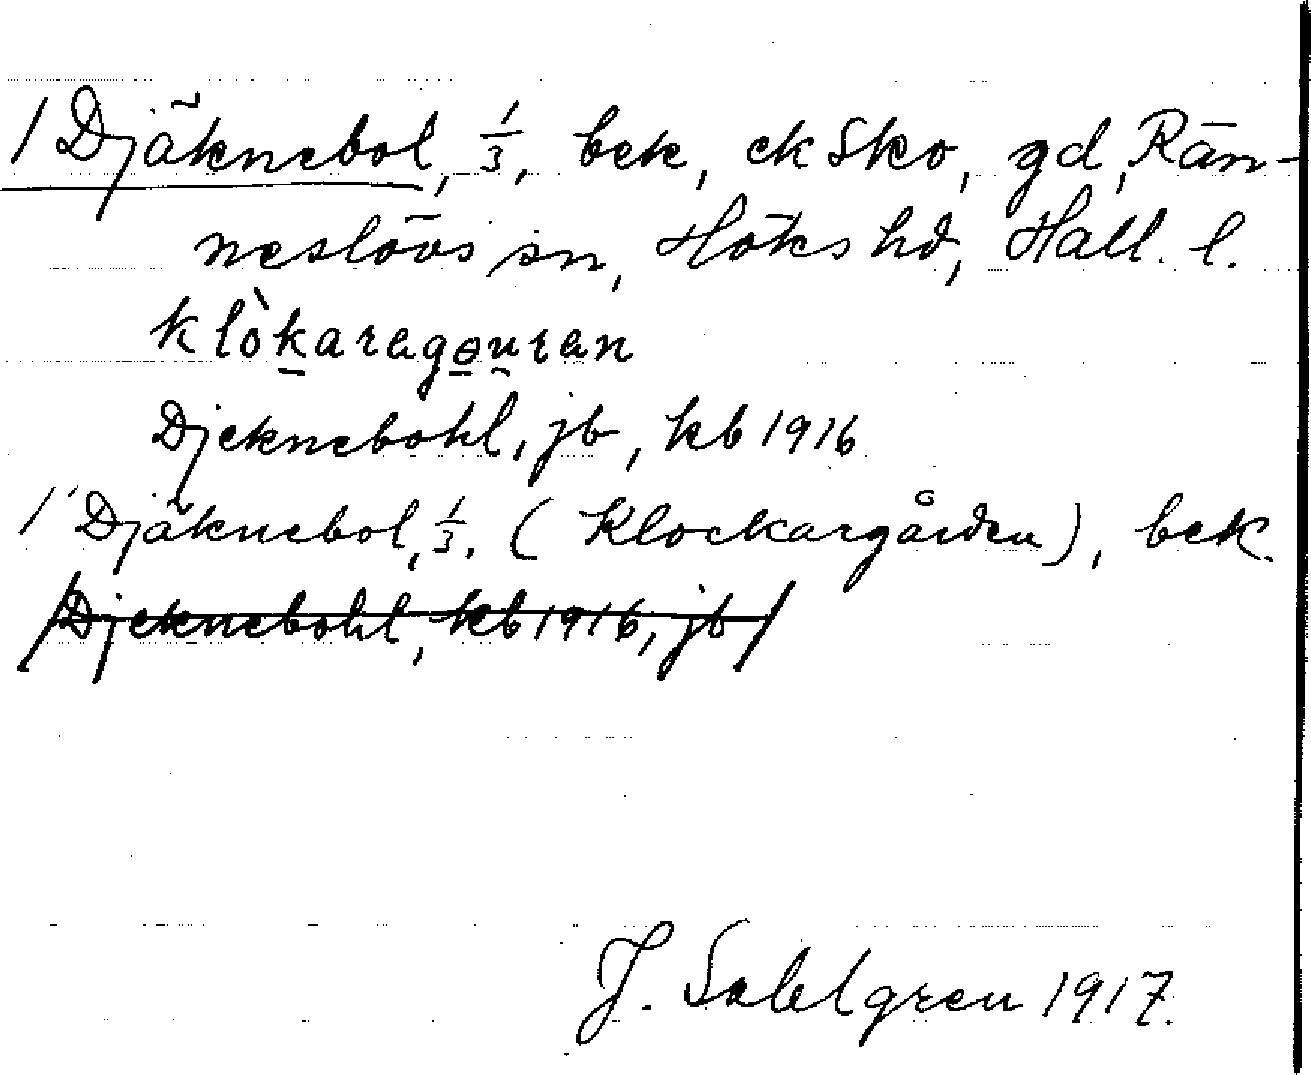 / Djäknebol, 1/3, bek, ek Sko, gd, Rän-
neslövs sn, Höks hd, Hall. l.
klòkaragɵu̯ran
Djeknebohl, jb, kb 1916
/ Djäknebol, 1/3, (Klockargården), bek.
/Djeknebohl, kb 1916, jb/
J. Sahlgren 1917.